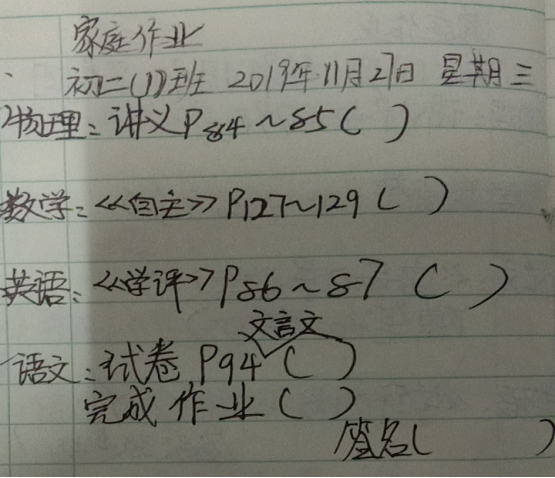 家庭作业
初二(1)班 2019年11月27日 星期三
物理:讲义P84~85( )
数学:《自主》P127~129( )
英语:《学评》P86~87( )
文言文
语文:试卷 P94( )
完成作业( )
签名( )